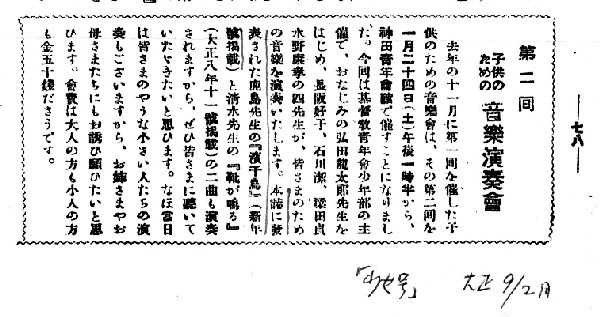 七八
第二回
子供の
ための
音樂演奏會
去年の十一月に第一回を催した子
供のための音樂會は、その第二回を
一月二十四日(土)午後一時半から、
神田青年會館で催すことになりまし
た。今回は基督敎青年會少年部の主
催で、おなじみの弘田龍太郎先生を
はじめ、長坂好子、石川潔、梁田貞
水野康孝の四先生が、皆さまのため
の音樂を演奏いたします。本誌に發
表された鹿島先生の『濱千鳥』(新年
號掲載)と淸水先生の『靴が鳴る』
(大正八年十一號掲載)の二曲も演奏
されますから、ぜひ皆さまに聽いて
いたゞきたいと思ひます。なほ當日
は皆さまのやうな小さい人たちの演
奏もございますから、お姉さまやお
母さまたちにもお誘ひ願ひたいと思
ひます。會費は大人の方も小人の方
も金五十錢ださうです。
大正9/2月